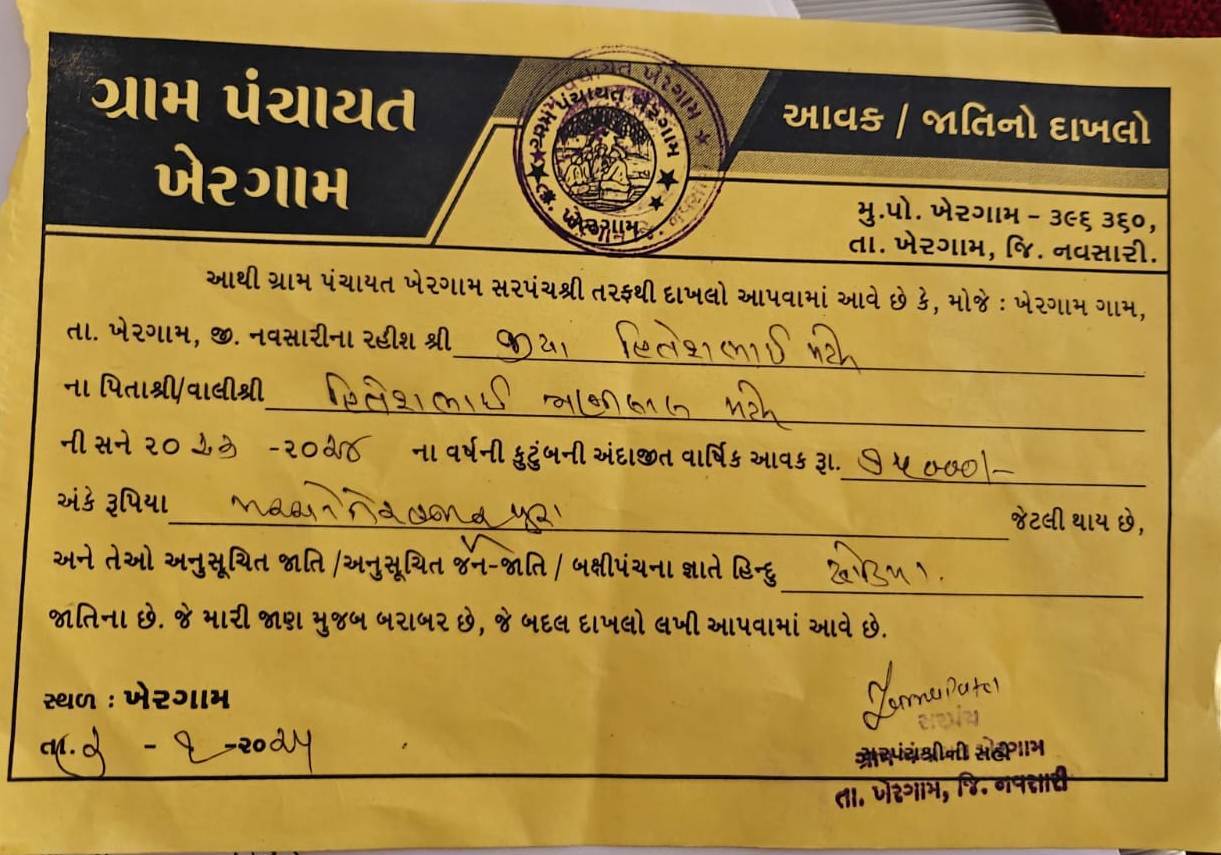 ગ્રામ પંચાયત
ખેરગામ
આવક / જાતિનો દાખલો
મુ.પો. ખેરગામ - ૩૯૬ ૩૬૦,
તા. ખેરગામ, જિ. નવસારી.
આથી ગ્રામ પંચાયત ખેરગામ સરપંચશ્રી તરફથી દાખલો આપવામાં આવે છે કે, મોજે : ખેરગામ ગામ,
તા. ખેરગામ, જી. નવસારીના રહીશ શ્રી જીયા હિતેશભાઈ પટેલ
ના પિતાશ્રી/વાલીશ્રી હિતેશભાઈ પટેલ
ની સને ૨૦૨૩ -૨૦૨૪ ના વર્ષની કુટુંબની અંદાજીત વાર્ષિક આવક રૂા. ૭૫૦૦૦/-
અંકે રૂપિયા જેટલી થાય છે,
અને તેઓ અનુસૂચિત જાતિ /અનુસૂચિત જન-જાતિ / બક્ષીપંચના જ્ઞાતે હિન્દુ ધોડિયા.
જાતિના છે. જે મારી જાણ મુજબ બરાબર છે, જે બદલ દાખલો લખી આપવામાં આવે છે.
સ્થળ : ખેરગામ
તા. ૨ - ૧ -૨૦૨૫
સરપંચ
તા. ખેરગામ, જિ. નવસારી